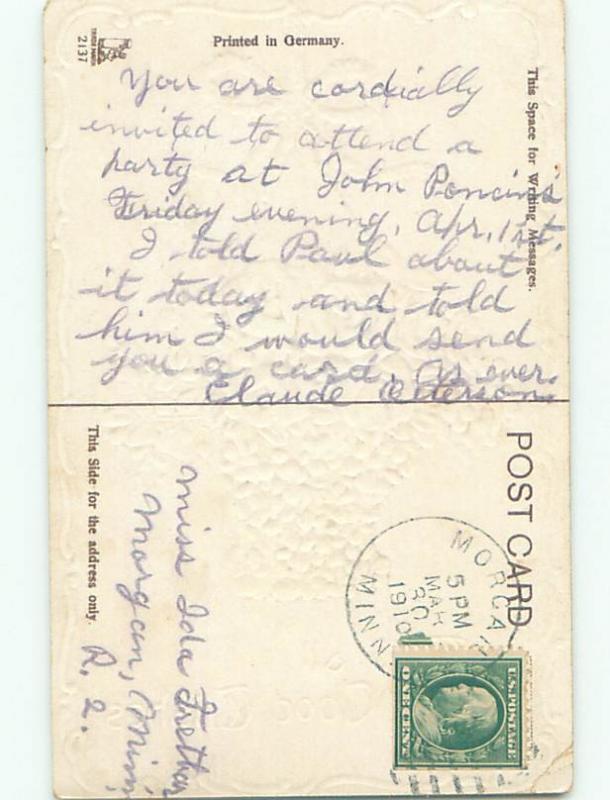 Printed in Germany.
2137
This Space for Writing Messages.
You are cordially
invited to attend a
party at John
Friday evening, Apr. 1st.
I told Paul about
it today and told
him I would send
you a card. As ever.
Claude Peterson.
POST CARD
This Side for the address only.
MORGAN
MINN.
5 PM
MAR
30
1910
U.S. POSTAGE
ONE CENT
Miss Ida
Morgan, Minn.
R. 2.
Good